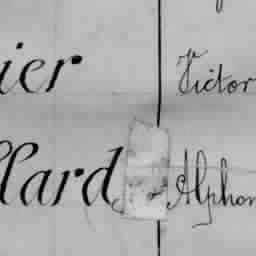 ier Victor
llard Alphon